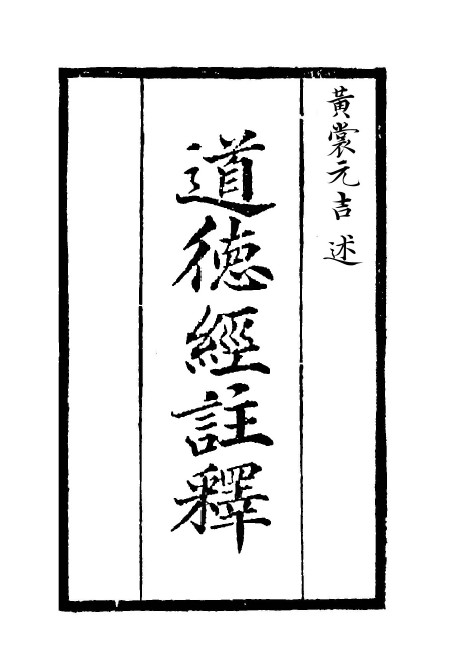 黃裳元吉 述
道德經註釋